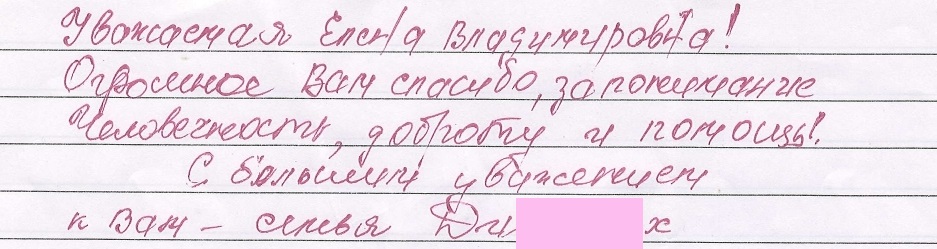 Уважаемая Елена Владимировна!
Огромное Вам спасибо, за понимание
Человечность, доброту и помощь!
С большим уважением
к Вам – семья